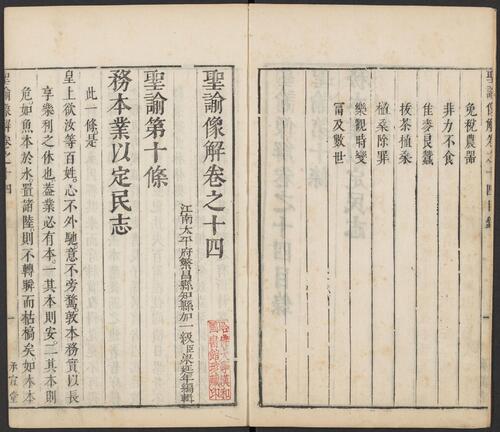 聖諭像解卷之十四目錄
免稅農器
非力不食
佳麥良蠶
拔茶植桑
植桑除罪
樂觀時變
富及數世
聖諭像解卷之十四
江南太平府繁昌縣知縣加一級臣梁延年編輯
哈佛大學漢和圖書館珍藏印
聖諭第十條
務本業以定民志
此一條是
皇上欲汝等百姓。心不外馳。意不旁騖。敦本務實。以長
享樂利之休也。蓋業必有本。一其本則安。二其本則
危。如魚本於水。置諸陸。則不轉瞬而枯槁矣。如木本
聖諭像解卷之十四 承宣堂